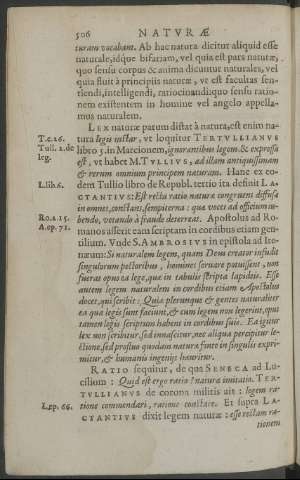 506 NATVRÆ
turam vocabam. Ab hac natura dicitur aliquid esse
naturale, idque bifariam, vel quia est pars naturæ,
quo sensu corpus & anima dicuntur naturales, vel
quia fluit à principiis naturæ, vt est facultas sen-
tiendi, intelligendi, ratiocinandi: quo sensu ratio-
nem existentem in homine vel angelo appella-
mus naturalem.
LEX naturæ parum distat à natura, est enim na-
T.c.26. tura legis instar, vt loquitur TERTVLLIANVS
Tull. 2. de libro 5. in Marcionem, ignorantibus legem. & expressa
leg. est, vt habet M. TVLLIVS, ad illam antiquissimam
& rerum omnium principem naturam. Hanc ex eo-
L.lib.6. dem Tullio libro de Republ. tertio ita definit LA-
CTANTIVS: Est recta ratio natura congruens diffusa
in omnes, constans, sempiterna: qua vocet ad officium iu-
Ro.2.15. bendo, vetando à fraude deterreat. Apostolus ad Ro-
A.ep.71. manos asserit eam scriptam in cordibus etiam gen-
tilium. Vnde S. AMBROSIVS in epistola ad Ire-
næum: Si naturalem legem, quam Deus creator infudit
singulorum pectoribus, homines seruare potuissent, non
fuerat opus ea lege, quæ in tabulis scripta lapideis. Esse
autem legem naturalem in cordibus etiam Apostolus
docet, qui scribit: Quia plerumque & gentes naturaliter
ea quæ legis sunt faciunt, & cum legem non legerint, opus
tamen legis scriptum habent in cordibus suis. Ea igitur
lex non scribitur, sed innascitur, nec aliqua percipitur le-
ctione, sed profluo quodam naturæ fonte in singulis expri-
mitur, & humanis ingeniis hauritur.
RATIO sequitur, de qua SENECA ad Lu-
cilium: Quid est ergo ratio? naturæ imitatio. TER-
TVLLIANVS de corona militis ait: legem ra-
L.ep. 66. tione commendari, ratione constare. Et supra LA-
CTANTIVS dixit legem naturæ: esse rectam ra-
tionem